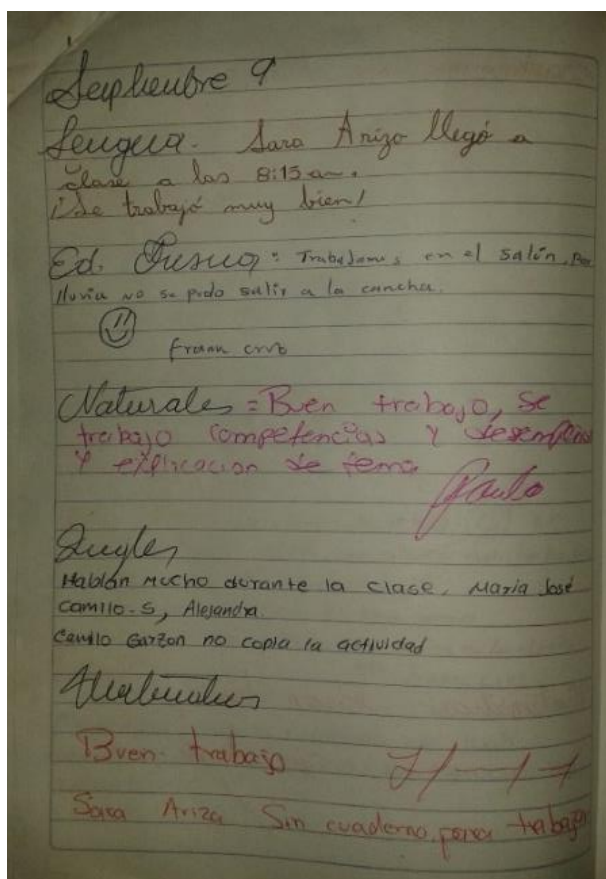 Septiembre 9
Lengua. Sara Ariza llegó a
clase a las 8:15 am.
¡Se trabajó muy bien!
Ed. Física: Trabajamos en el salón, por
lluvia no se pudo salir a la cancha.
cruz
Naturales = Buen trabajo, se
trabajo competencias y desempeño
y explicacion de tema
Paulo
Ingles
Hablan mucho durante la clase, María José
Camilo.S, Alejandra.
Camilo Garzon no copia la actividad
Matematicas
Buen trabajo
Sara Ariza Sin cuaderno para trabajar